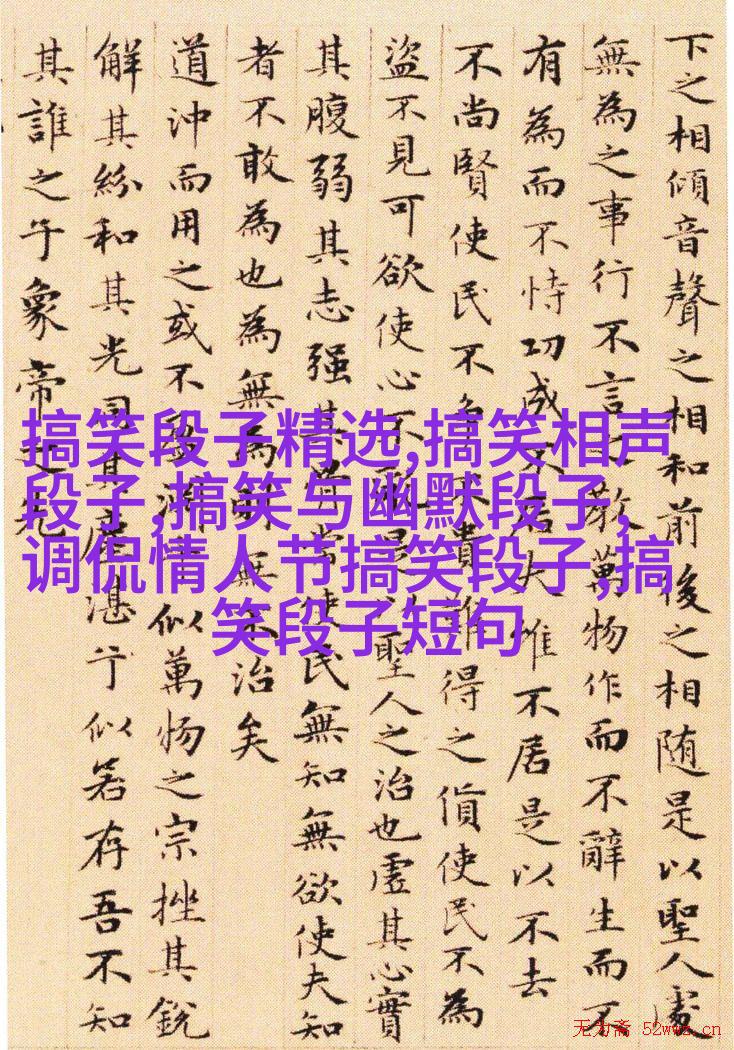 下之相傾音聲之相和前後之相随是以聖人處
無為之事行不言之教萬物作而不辭生而不
有為而不恃功成不居夫惟不居是以不去
不尚賢使民不争不貴難得之貨使民不為
盜不見可欲使心不亂是以聖人之治也虛其心實
其腹弱其志强其骨常使民無知無欲使夫知
者不敢為也為無為則無不治矣
道沖而用之或不盈淵兮似萬物之宗挫其銳
解其紛和其光同其塵湛兮似若存吾不知
其誰之子象帝之先
搞笑段子精选,搞笑相声
段子,搞笑与幽默段子,
调侃情人节搞笑段子,搞
笑段子短句
无为斋 52wwz.cn